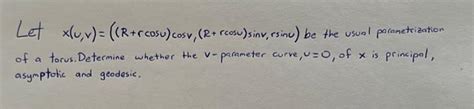 Let x(u,v) = ((R+rcosu)cosv, (R+rcosu)sinv, rsinu) be the usual parametrization
of a torus. Determine whether the v-parameter curve, u=0, of x is principal,
asymptotic and geodesic.